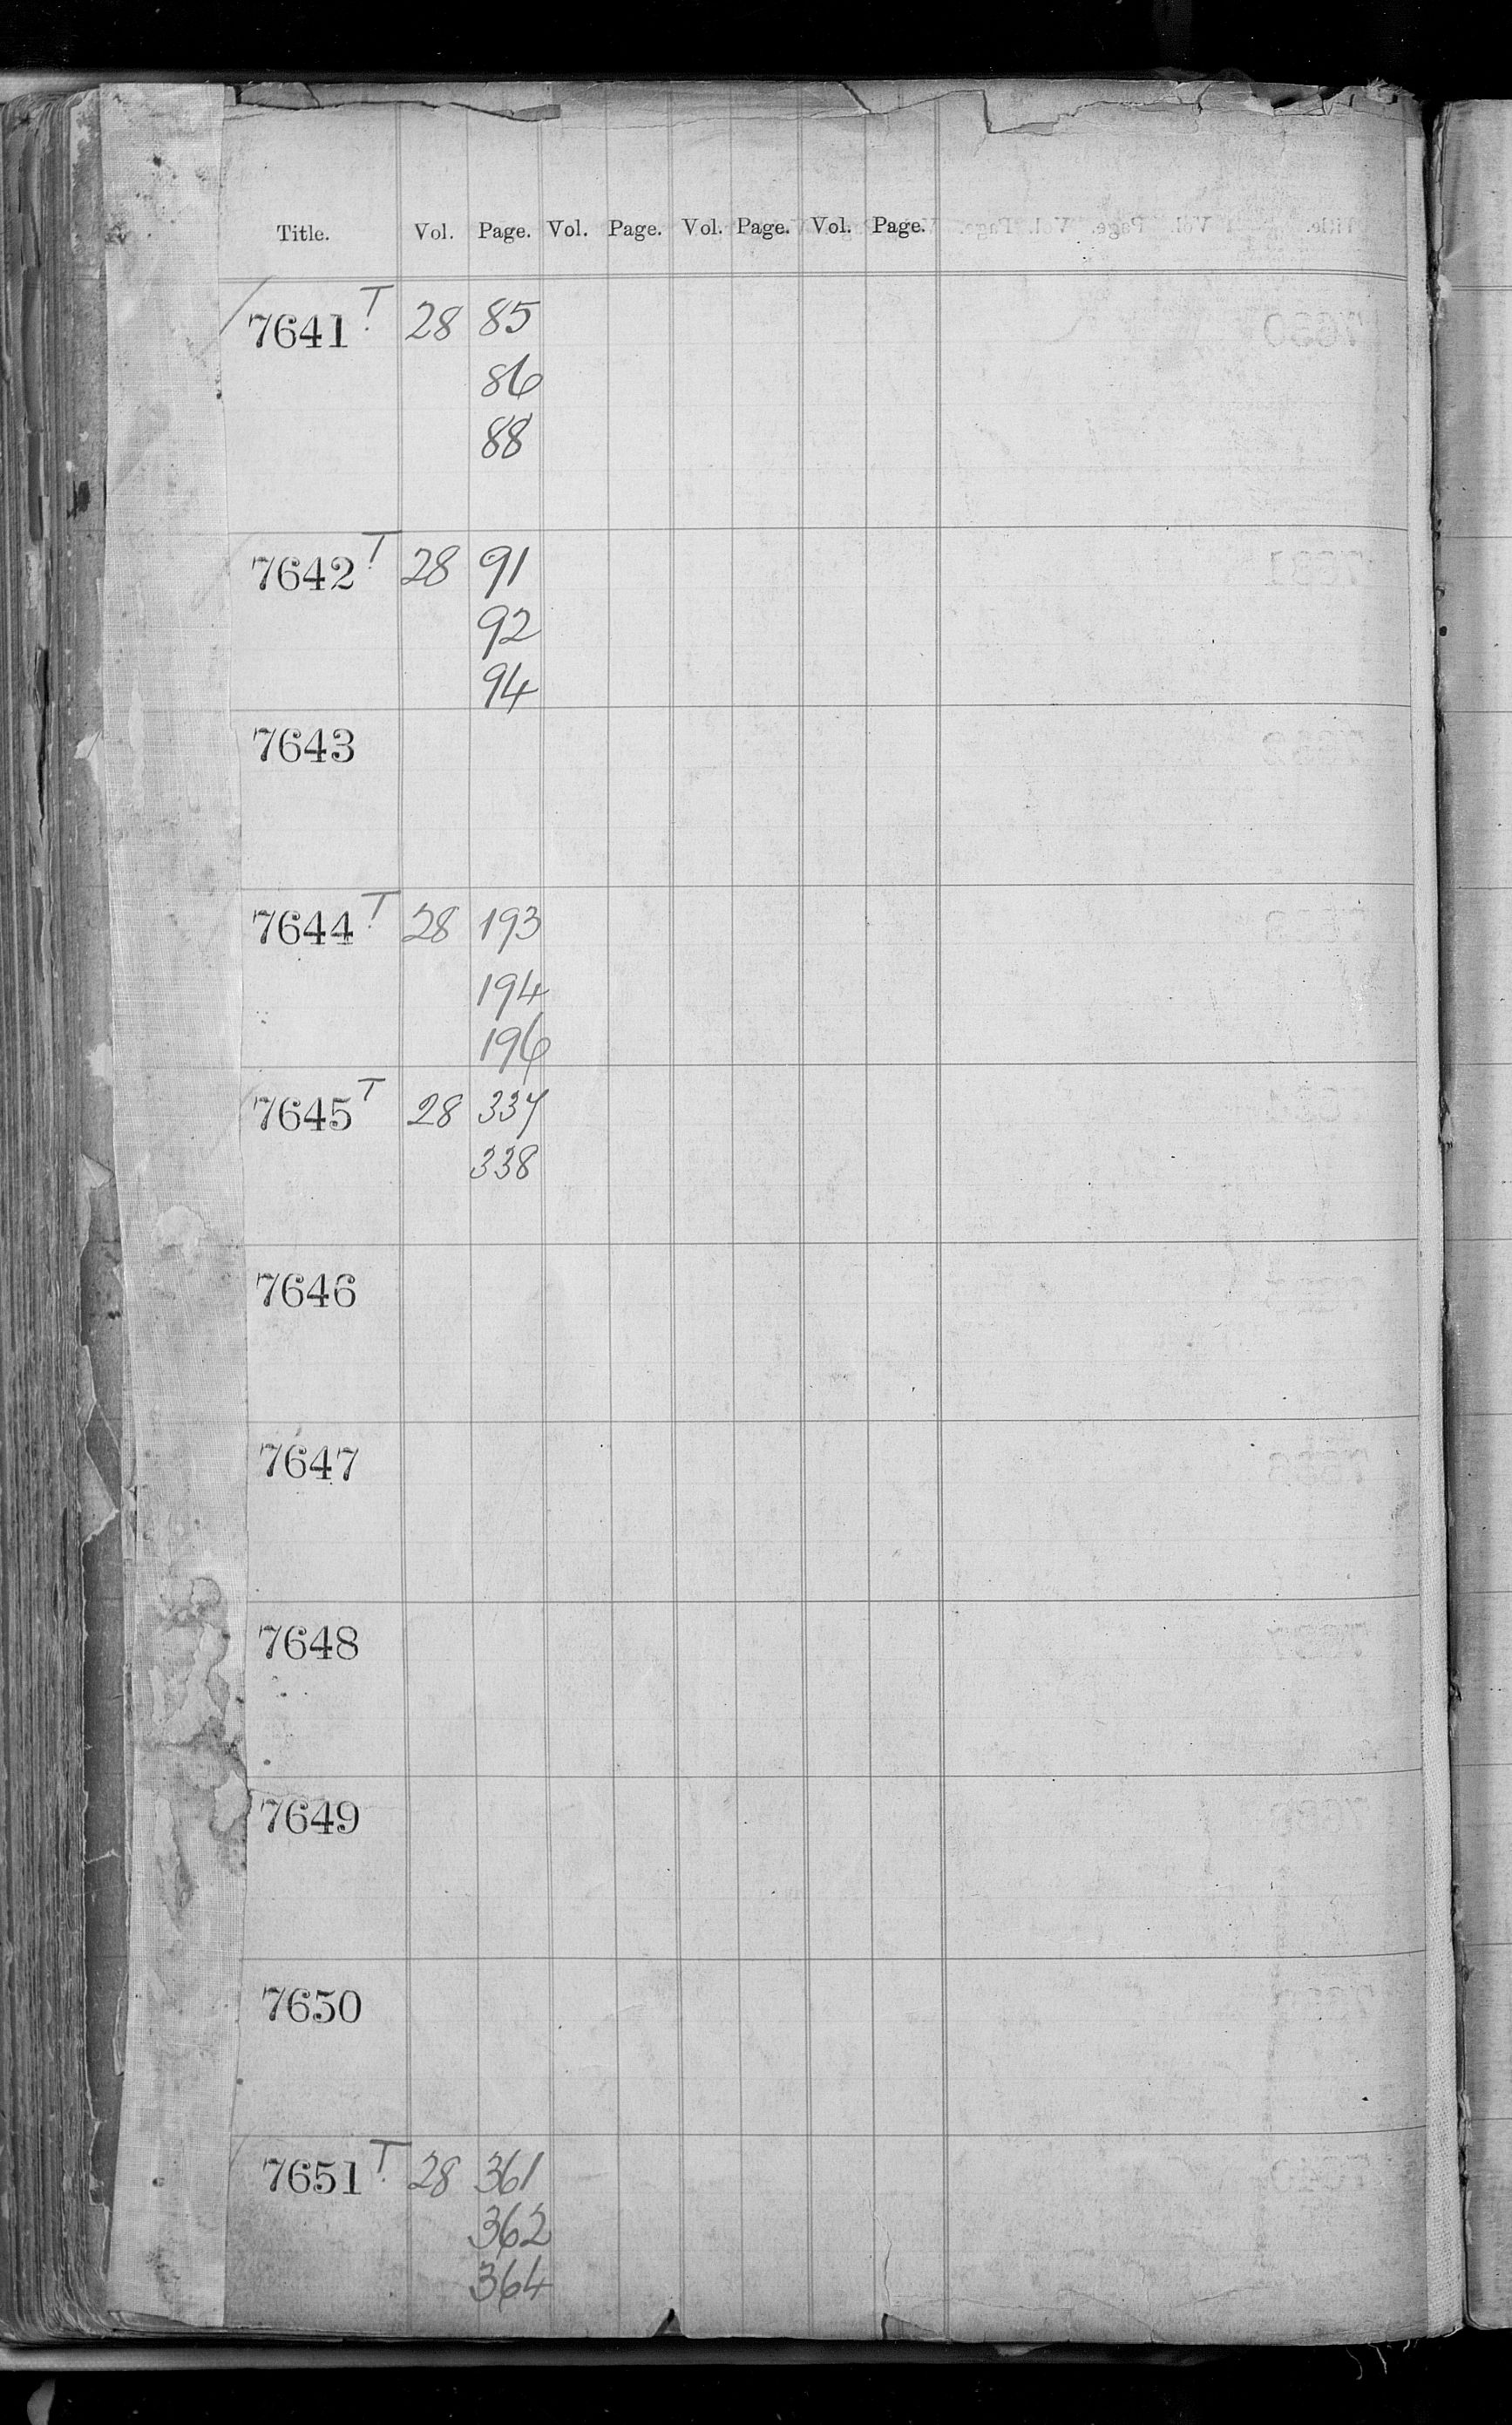 Title. Vol. Page. Vol. Page. Vol. Page. Vol. Page.
7641 T 28 85
86
88
7642 T 28 91
92
94
7643
7644 T 28 193
194
196
7645 T 28 337
338
7646
7647
7648
7649
7650
7651 T 28 361
362
364